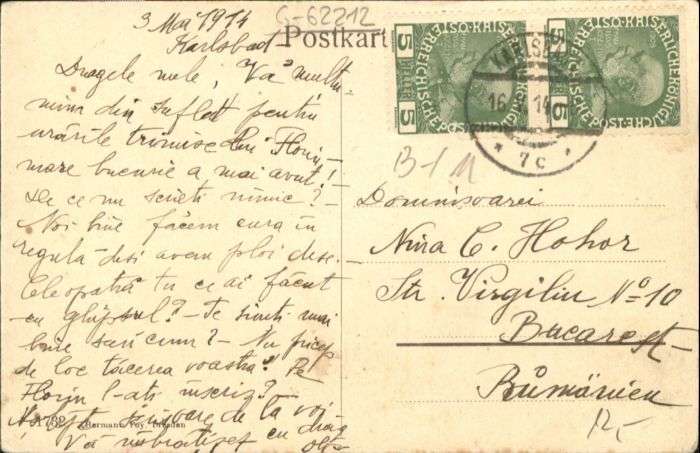 3 Mai 1914
Karlsbad
G-62212
Postkart
Dragele mele, Vă mulțu-
mim din suflet pentru
urările trimise lui Florin
mare bucurie a mai avut! -
De ce nu scrieți nimic?
Noi bine facem cura în
regulă deși avem ploi dese.
Cleopatră tu ce ai făcut
cu ghipsul? - Te simți mai
bine sau cum? - Nu pricep
de loc tăcerea voastră? Pe
Florin l-ați înscris?
scrisoare de la voi
Vă îmbrățișez cu drag
5 HELLER
KAISERLICHE KÖNIGLICHE ÖSTERREICHISCHE POST
5
KARLSBAD
16 V 14
* 7c *
B-1 M
Domnișoarei
Nina C. Hohor
Str. Virgiliu No 10
Bucarest
Rumänien
12,-